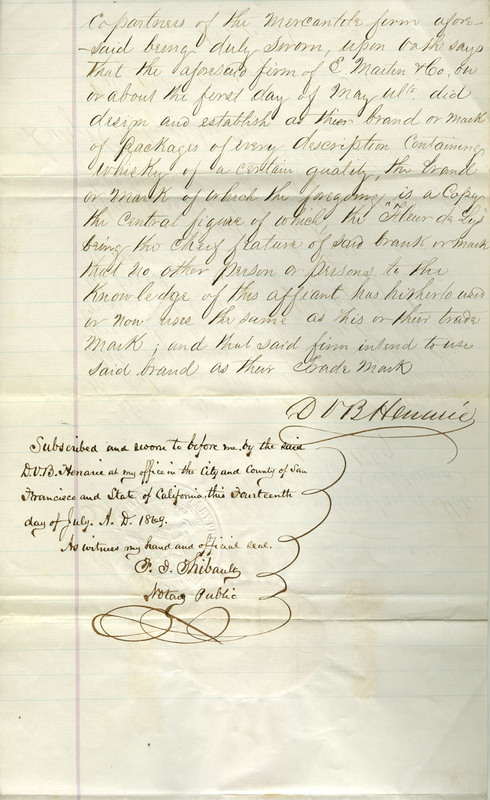 Copartners of the Mercantile firm afore-
-said being duly sworn, upon oath says
that the aforesaid firm of E. Martin & Co, on
or about the first day of May ultº did
design and establish as their brand or mark
of packages of every description containing
Whisky of a certain quality, the brand
or mark of which the foregoing is a Copy
the Central figure of which the "Fleur de Lys"
being the chief feature of said brank or mark
that no other person or persons to the
Knowledge of this affiant has hitherto used
or now uses the same as his or their trade
Mark; and that said firm intend to use
said brand as their Trade Mark
D V B Henarie
Subscribed and sworn to before me, by the said
D.V.B. Henarie at my office in the City and County of San
Francisco and State of California, this Fourteenth
day of July, A. D. 1869.
As witness my hand and official seal.
F. J. Thibault
Notary Public